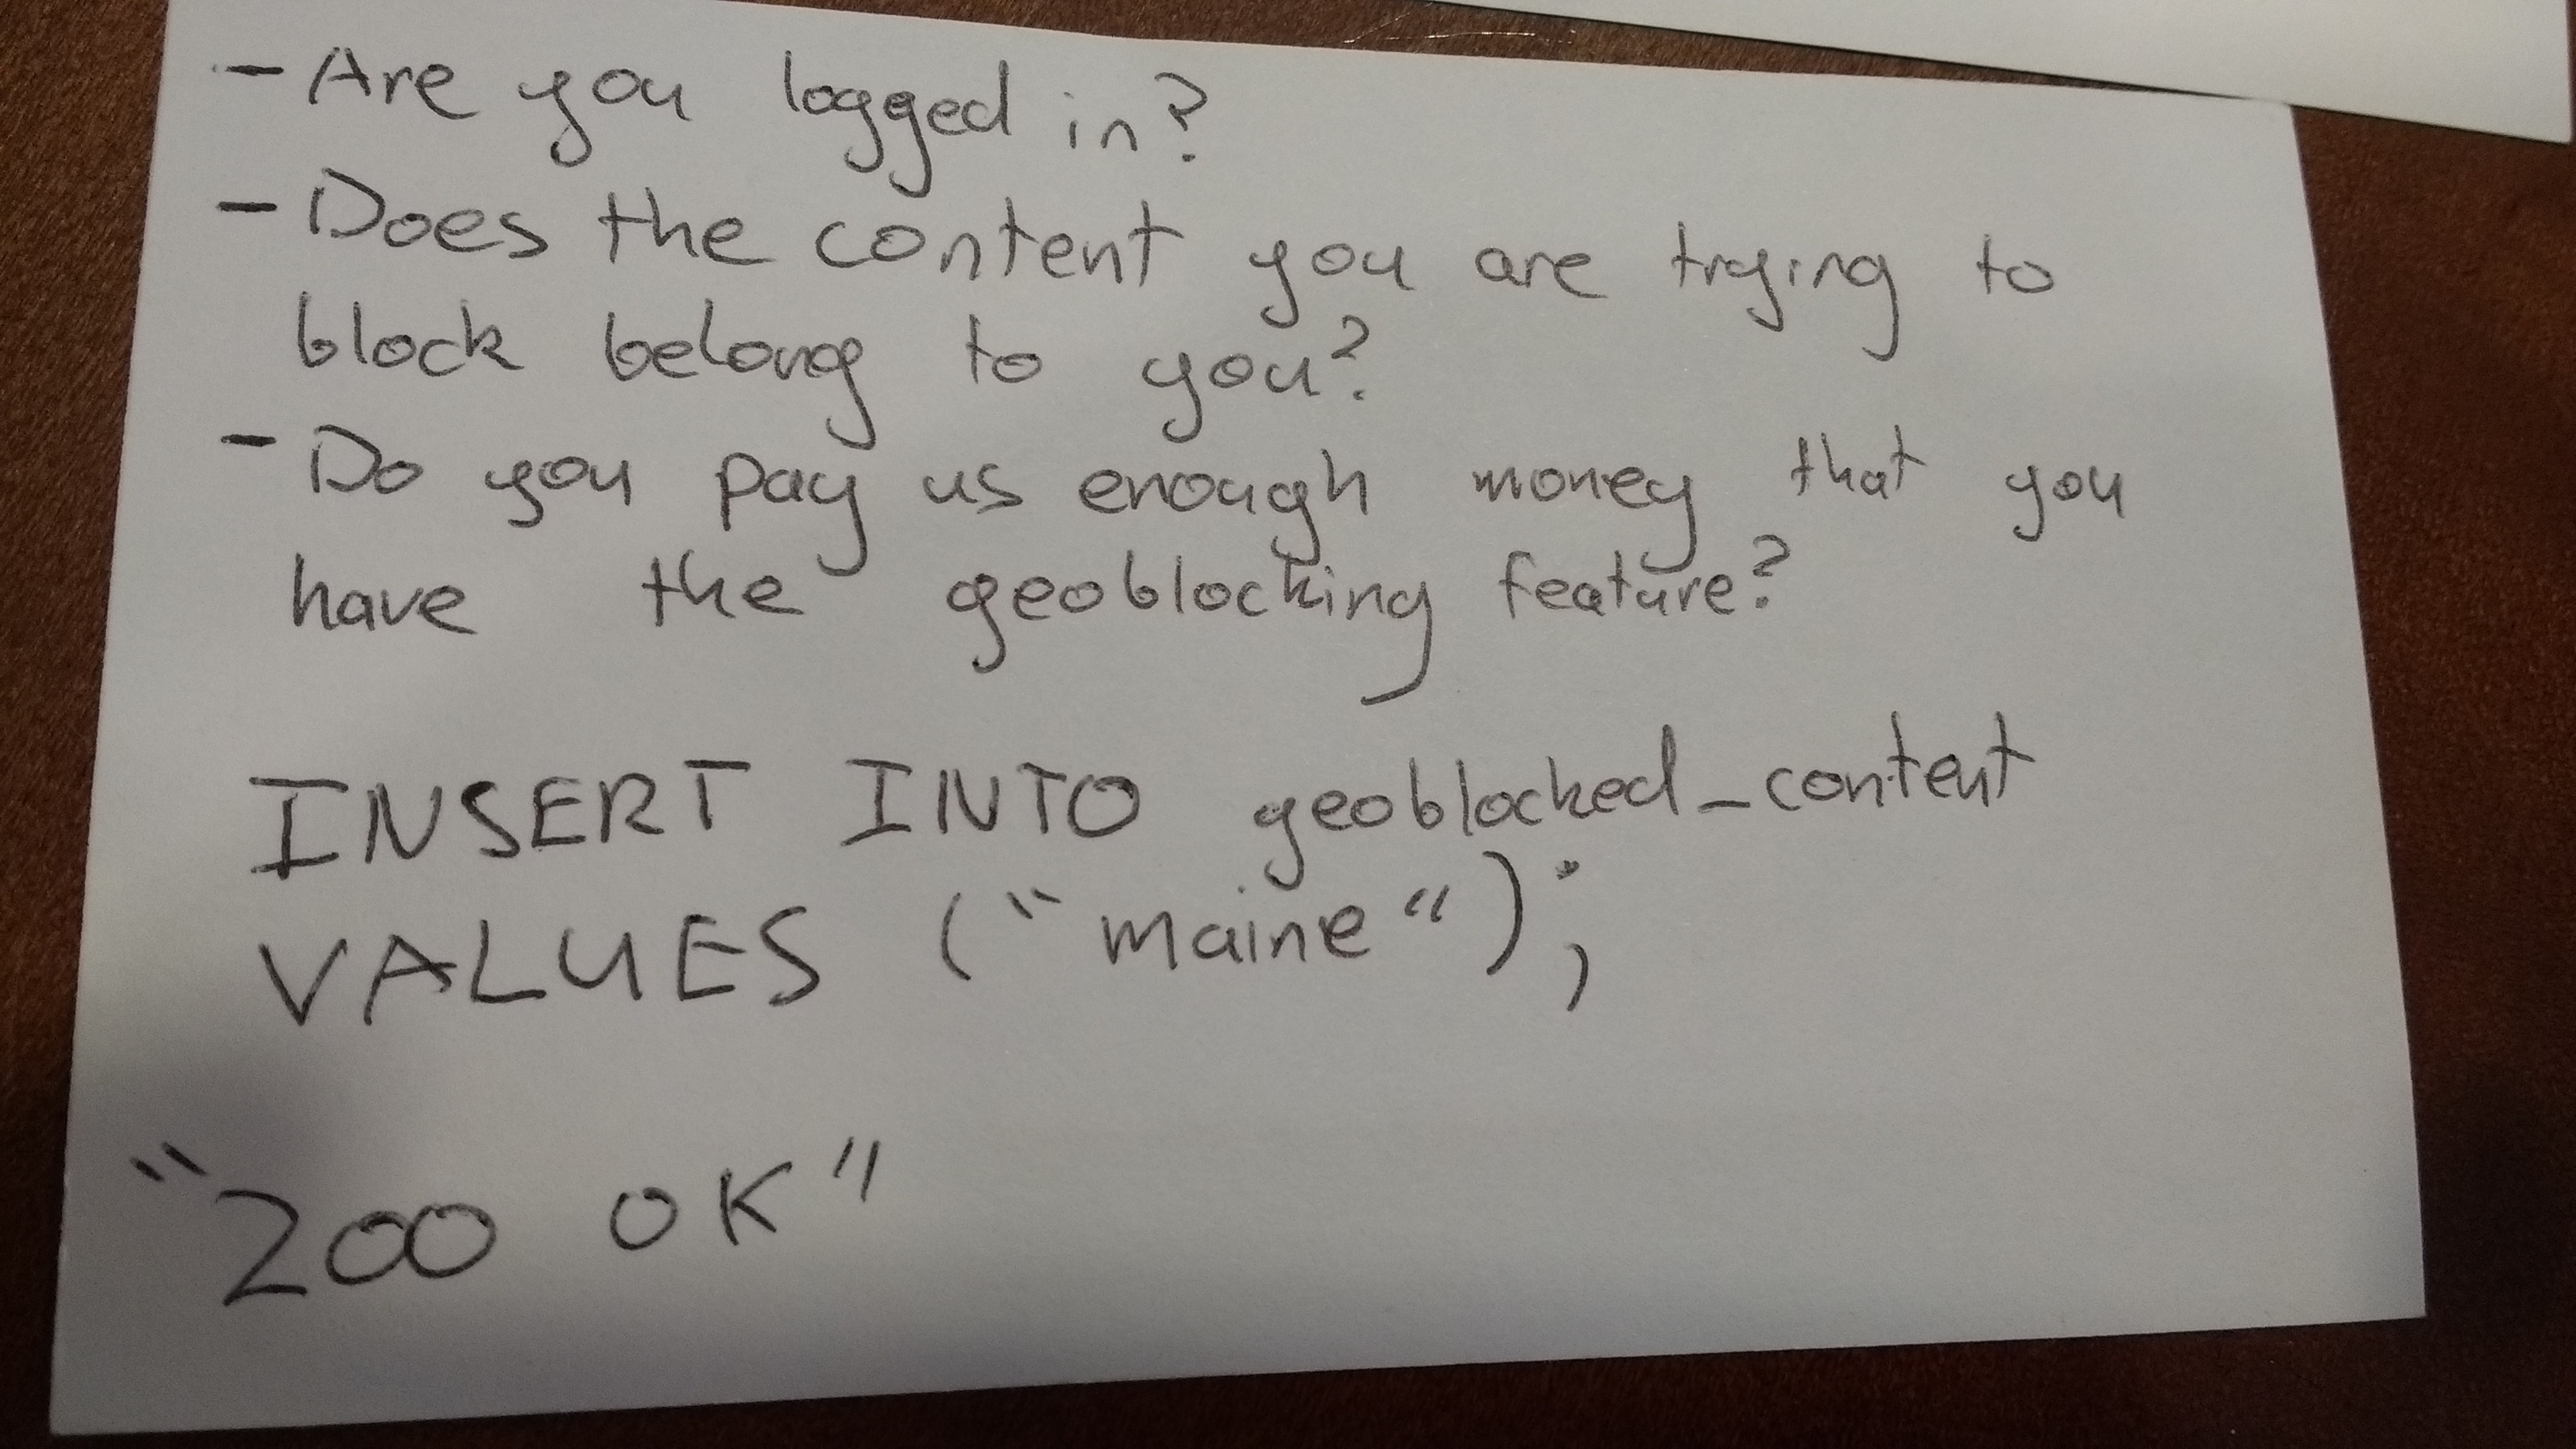 - Are you logged in?
- Does the content you are trying to
block belong to you?
- Do you pay us enough money that you
have the geoblocking feature?
INSERT INTO geoblocked_content
VALUES ("maine");
"200 OK"